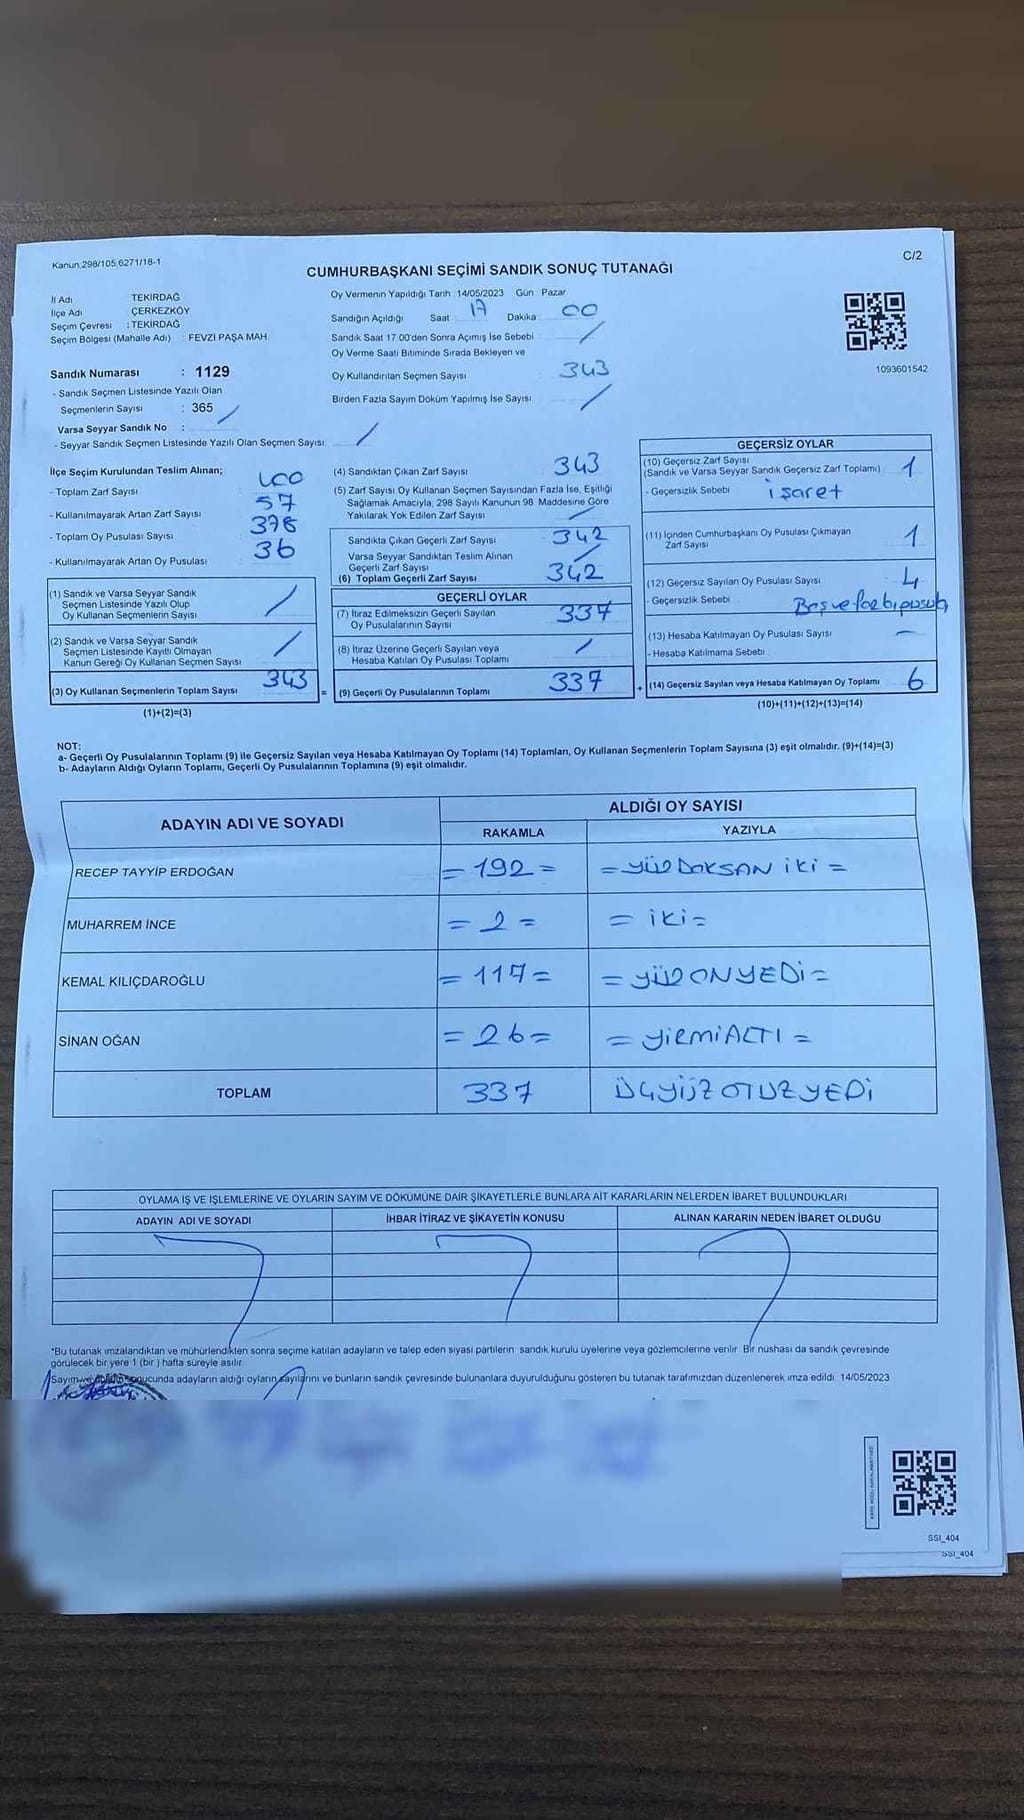 Kanun.298/105,6271/18-1
C/2
CUMHURBAŞKANI SEÇİMİ SANDIK SONUÇ TUTANAĞI
İl Adı TEKİRDAĞ
İlçe Adı ÇERKEZKÖY
Seçim Çevresi : TEKİRDAĞ
Seçim Bölgesi (Mahalle Adı) : FEVZİ PAŞA MAH.
Oy Vermenin Yapıldığı Tarih :14/05/2023 Gün : Pazar
Sandığın Açıldığı Saat : 17 Dakika : 00
Sandık Saat 17.00'den Sonra Açımış İse Sebebi /
Oy Verme Saati Bitiminde Sırada Bekleyen ve
Oy Kullandırılan Seçmen Sayısı : 343
Birden Fazla Sayım Döküm Yapılmış İse Sayısı /
1093601542
Sandık Numarası : 1129
- Sandık Seçmen Listesinde Yazılı Olan
Seçmenlerin Sayısı : 365
Varsa Seyyar Sandık No : /
- Seyyar Sandık Seçmen Listesinde Yazılı Olan Seçmen Sayısı: /
İlçe Seçim Kurulundan Teslim Alınan;
- Toplam Zarf Sayısı 400
- Kullanılmayarak Artan Zarf Sayısı 57
- Toplam Oy Pusulası Sayısı 378
- Kullanılmayarak Artan Oy Pusulası 36
(1) Sandık ve Varsa Seyyar Sandık
Seçmen Listesinde Yazılı Olup
Oy Kullanan Seçmenlerin Sayısı /
(2) Sandık ve Varsa Seyyar Sandık
Seçmen Listesinde Kayıtlı Olmayan
Kanun Gereği Oy Kullanan Seçmen Sayısı /
(3) Oy Kullanan Seçmenlerin Toplam Sayısı 343
(1)+(2)=(3)
(4) Sandıktan Çıkan Zarf Sayısı 343
(5) Zarf Sayısı Oy Kullanan Seçmen Sayısından Fazla İse, Eşitliği
Sağlamak Amacıyla, 298 Sayılı Kanunun 98. Maddesine Göre
Yakılarak Yok Edilen Zarf Sayısı /
Sandıkta Çıkan Geçerli Zarf Sayısı 342
Varsa Seyyar Sandıktan Teslim Alınan
Geçerli Zarf Sayısı /
(6) Toplam Geçerli Zarf Sayısı 342
GEÇERLİ OYLAR
(7) İtiraz Edilmeksizin Geçerli Sayılan
Oy Pusulalarının Sayısı 337
(8) İtiraz Üzerine Geçerli Sayılan veya
Hesaba Katılan Oy Pusulası Toplamı /
= (9) Geçerli Oy Pusulalarının Toplamı 337
GEÇERSİZ OYLAR
(10) Geçersiz Zarf Sayısı
(Sandık ve Varsa Seyyar Sandık Geçersiz Zarf Toplamı) 1
- Geçersizlik Sebebi işaret
(11) İçinden Cumhurbaşkanı Oy Pusulası Çıkmayan
Zarf Sayısı 1
(12) Geçersiz Sayılan Oy Pusulası Sayısı 4
- Geçersizlik Sebebi Boş ve
(13) Hesaba Katılmayan Oy Pusulası Sayısı —
- Hesaba Katılmama Sebebi
+ (14) Geçersiz Sayılan veya Hesaba Katılmayan Oy Toplamı 6
(10)+(11)+(12)+(13)=(14)
NOT:
a- Geçerli Oy Pusulalarının Toplamı (9) ile Geçersiz Sayılan veya Hesaba Katılmayan Oy Toplamı (14) Toplamları, Oy Kullanan Seçmenlerin Toplam Sayısına (3) eşit olmalıdır. (9)+(14)=(3)
b- Adayların Aldığı Oyların Toplamı, Geçerli Oy Pusulalarının Toplamına (9) eşit olmalıdır.
ADAYIN ADI VE SOYADI ALDIĞI OY SAYISI
RAKAMLA YAZIYLA
RECEP TAYYİP ERDOĞAN =192= =YÜZ DOKSAN İKİ=
MUHARREM İNCE =2= =İKİ=
KEMAL KILIÇDAROĞLU =117= =YÜZ ONYEDİ=
SİNAN OĞAN =26= =YİRMİALTI=
TOPLAM 337 ÜÇYÜZ OTUZYEDİ
OYLAMA İŞ VE İŞLEMLERİNE VE OYLARIN SAYIM VE DÖKÜMÜNE DAİR ŞİKAYETLERLE BUNLARA AİT KARARLARIN NELERDEN İBARET BULUNDUKLARI
ADAYIN ADI VE SOYADI İHBAR İTİRAZ VE ŞİKAYETİN KONUSU ALINAN KARARIN NEDEN İBARET OLDUĞU
*Bu tutanak imzalandıktan ve mühürlendikten sonra seçime katılan adayların ve talep eden siyasi partilerin sandık kurulu üyelerine veya gözlemcilerine verilir. Bir nüshası da sandık çevresinde
görülecek bir yere 1 (bir ) hafta süreyle asılır.
Sayım ve sonucunda adayların aldığı oyların sayılarını ve bunların sandık çevresinde bulunanlara duyurulduğunu gösteren bu tutanak tarafımızdan düzenlenerek imza edildi. 14/05/2023
SSI_404
SSI_404